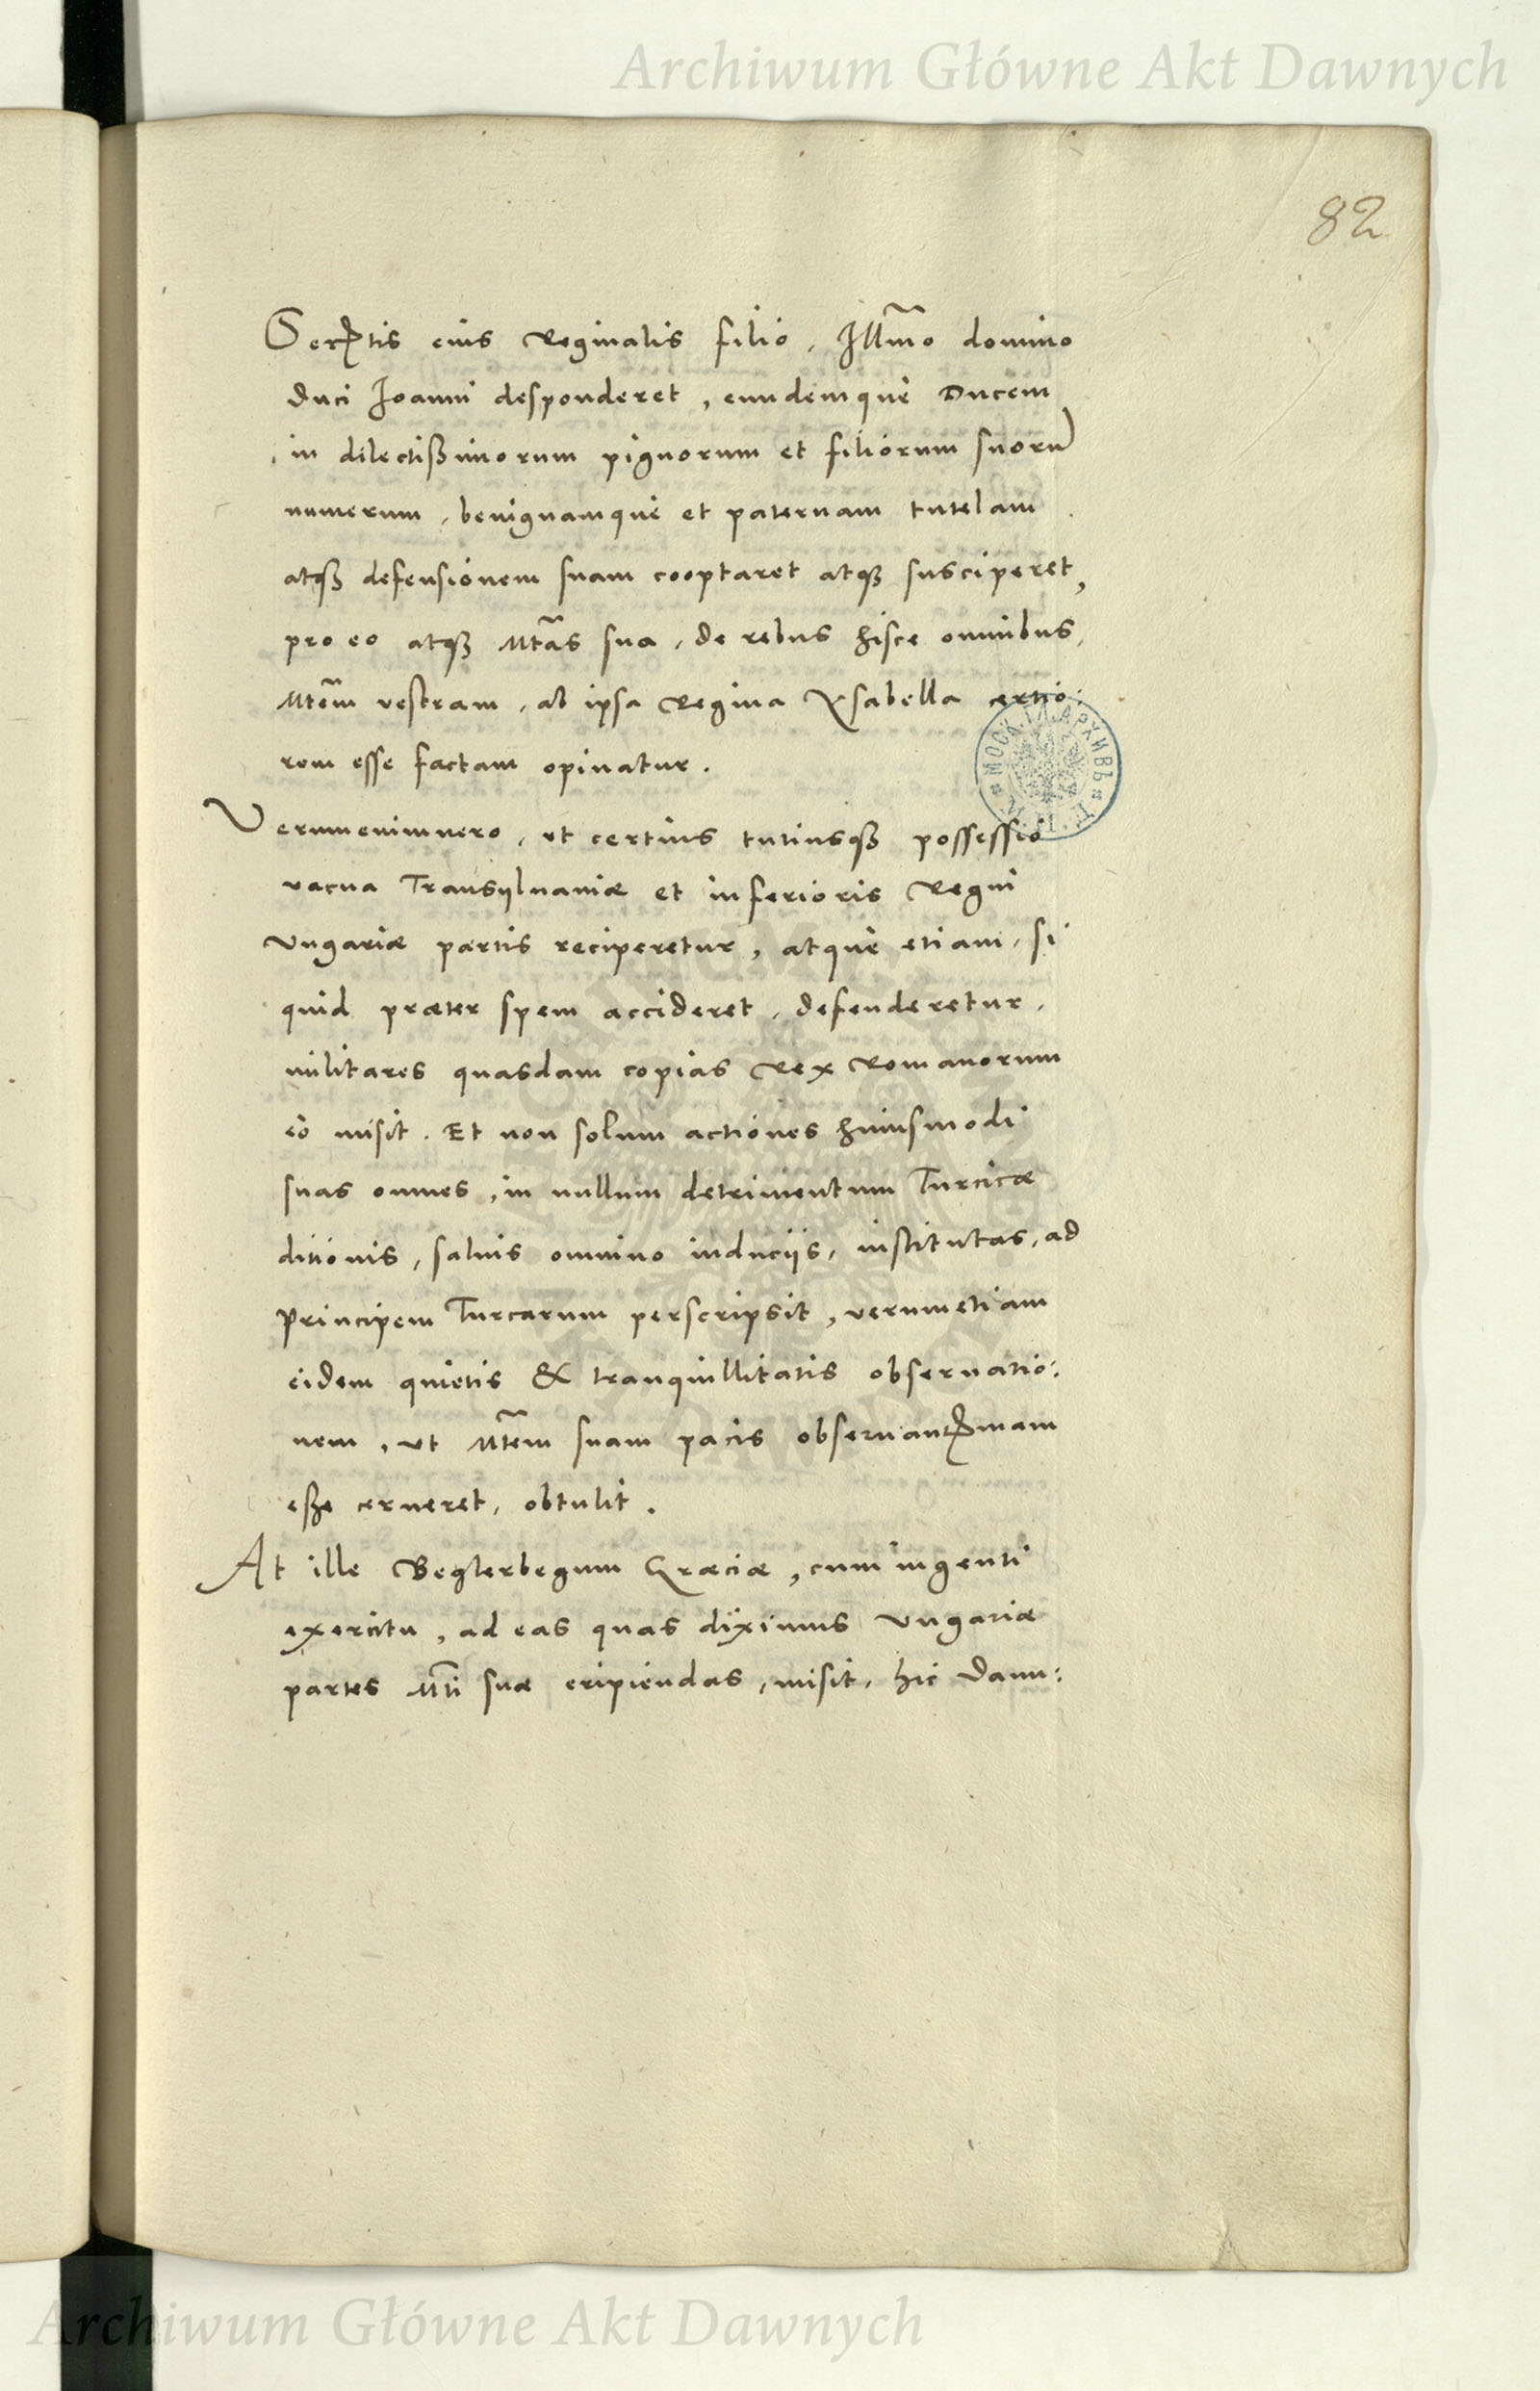 Archiwum Główne Akt Dawnych
82
Sertis eius Reginalis filio, Illmo domino
Duci Joanni desponderet, eundemque Ducem
in dilectißimorum pignorum et filiorum suorū
numerum, benignamque et paternam tutelam
atqꝫ defensionem suam cooptaret atqꝫ susciperet,
pro eo atqꝫ Mtās sua, de rebus hisce omnibus,
Mtem̄ vestram, ab ipsa Regina Ysabella certio:
rem esse factam opinatur.
Verumenimuero, ut certius tutiusqꝫ possessio
vacua Transyluaniæ et inferioris Regni
Vngariæ partis reciperetur, atque etiam, si
quid præter spem accideret, defenderetur,
militares quasdam copias Rex Romanorum
eò misit. Et non solum actiones huiusmodi
suas omnes, in nullum detrimentum Turcicæ
ditionis, saluis omnino induciis, institutas, ad
Principem Turcarum perscripsit, verumetiam
eidem quietis & tranquillitatis obseruatio:
nem, ut Mtem̄ suam pacis obseruantmam
eße cerneret, obtulit.
At ille Beglerbegum Græciæ, cum ingenti
exercitu, ad eas quas diximus Vngariæ
partes Mti̅ suæ eripiendas, misit, hic Danu:
МОСК. ГЛ. АРХИВЪ
Archiwum Główne Akt Dawnych